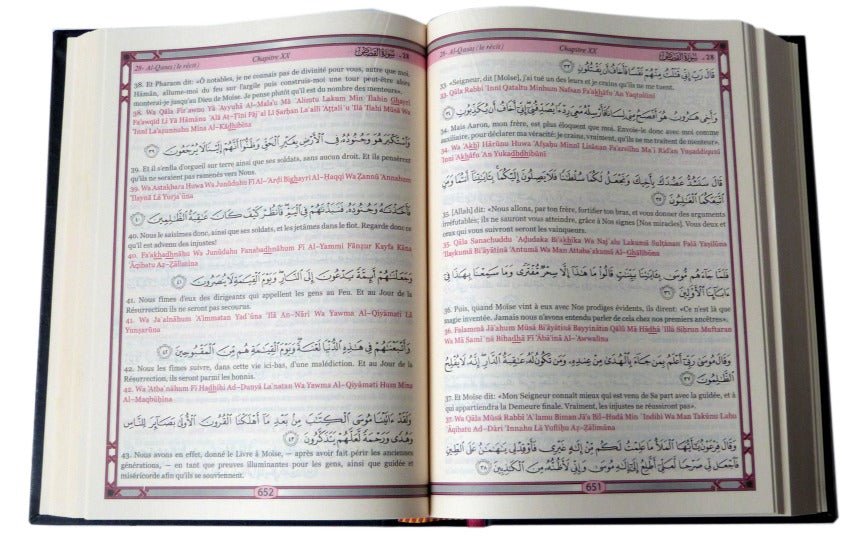 28- Al-Qasas ( le récit ) Chapitre XX سُورَةُ القَصَصِ - 28
قَالَ رَبِّ إِنِّي قَتَلْتُ مِنْهُمْ نَفْسًا فَأَخَافُ أَن يَقْتُلُونِ ٣٣
33. «Seigneur, dit [Moïse], j'ai tué un des leurs et je crains qu'ils ne me tuent.
33. Qāla Rabbi 'Innī Qataltu Minhum Nafsan Fa'akhāfu 'An Yaqtulūni
وَأَخِي هَارُونُ هُوَ أَفْصَحُ مِنِّي لِسَانًا فَأَرْسِلْهُ مَعِيَ رِدْءًا يُصَدِّقُنِي إِنِّي أَخَافُ أَن يُكَذِّبُونِ ٣٤
34. Mais Aaron, mon frère, est plus éloquent que moi. Envoie-le donc avec moi comme
auxiliaire, pour déclarer ma véracité: je crains, vraiment, qu'ils ne me traitent de menteur».
34. Wa 'Akhī Hārūnu Huwa 'Afşaĥu Minnī Lisānan Fa'arsilhu Ma`ī Rid'an Yuşaddiqunī
'Innī 'Akhāfu 'An Yukadhdhibūni
قَالَ سَنَشُدُّ عَضُدَكَ بِأَخِيكَ وَنَجْعَلُ لَكُمَا سُلْطَانًا فَلَا يَصِلُونَ إِلَيْكُمَا بِآيَاتِنَا أَنتُمَا وَمَنِ
اتَّبَعَكُمَا الْغَالِبُونَ ٣٥
35. [Allah] dit: «Nous allons, par ton frère, fortifier ton bras, et vous donner des arguments
irréfutables; ils ne sauront vous atteindre, grâce à Nos signes [Nos miracles]. Vous deux et
ceux qui vous suivront seront les vainqueurs.
35. Qāla Sanashuddu `Ađudaka Bi'akhīka Wa Naj`alu Lakumā Sulţānan Falā Yaşilūna
'Ilaykumā Bi'āyātinā 'Antumā Wa Man Attaba`akumā Al-Ghālibūna
فَلَمَّا جَاءَهُم مُّوسَى بِآيَاتِنَا بَيِّنَاتٍ قَالُوا مَا هَذَا إِلَّا سِحْرٌ مُّفْتَرًى وَمَا سَمِعْنَا بِهَذَا فِي
آبَائِنَا الْأَوَّلِينَ ٣٦
36. Puis, quand Moïse vint à eux avec Nos prodiges évidents, ils dirent: «Ce n'est là que
magie inventée. Jamais nous n'avons entendu parler de cela chez nos premiers ancêtres».
36. Falammā Jā'ahum Mūsá Bi'āyātinā Bayyinātin Qālū Mā Hādhā 'Illā Siĥrun Muftaran
Wa Mā Sami`nā Bihadhā Fī 'Ābā'inā Al-'Awwalīna
وَقَالَ مُوسَى رَبِّي أَعْلَمُ بِمَن جَاءَ بِالْهُدَى مِنْ عِندِهِ وَمَن تَكُونُ لَهُ عَاقِبَةُ الدَّارِ إِنَّهُ لَا يُفْلِحُ
الظَّالِمُونَ ٣٧
37. Et Moïse dit: «Mon Seigneur connaît mieux qui est venu de Sa part avec la guidée, et à
qui appartiendra la Demeure finale. Vraiment, les injustes ne réussiront pas».
37. Wa Qāla Mūsá Rabbī 'A`lamu Biman Jā'a Bil-Hudá Min `Indihi Wa Man Takūnu Lahu
`Āqibatu Ad-Dāri 'Innahu Lā Yufliĥu Až-Žālimūna
وَقَالَ فِرْعَوْنُ يَا أَيُّهَا الْمَلَأُ مَا عَلِمْتُ لَكُم مِّنْ إِلَهٍ غَيْرِي فَأَوْقِدْ لِي يَا هَامَانُ عَلَى الطِّينِ
فَاجْعَل لِّي صَرْحًا لَّعَلِّي أَطَّلِعُ إِلَى إِلَهِ مُوسَى وَإِنِّي لَأَظُنُّهُ مِنَ الْكَاذِبِينَ ٣٨
651
28- Al-Qasas ( le récit ) Chapitre XX سُورَةُ القَصَصِ - 28
38. Et Pharaon dit: «Ô notables, je ne connais pas de divinité pour vous, autre que moi.
Hāmān, allume-moi du feu sur l'argile puis construis-moi une tour peut-être alors
monterai-je jusqu'au Dieu de Moïse. Je pense plutôt qu'il est du nombre des menteurs».
38. Wa Qāla Fir`awnu Yā 'Ayyuhā Al-Mala'u Mā `Alimtu Lakum Min 'Ilahin Ghayrī
Fa'awqid Lī Yā Hāmānu `Alá Aţ-Ţīni Fāj`al Lī Şarĥan La`allī 'Aţţali`u 'Ilá 'Ilahi Mūsá Wa
'Innī La'ažunnuhu Mina Al-Kādhibīna
وَاسْتَكْبَرَ هُوَ وَجُنُودُهُ فِي الْأَرْضِ بِغَيْرِ الْحَقِّ وَظَنُّوا أَنَّهُمْ إِلَيْنَا لَا يُرْجَعُونَ ٣٩
39. Et il s'enfla d'orgueil sur terre ainsi que ses soldats, sans aucun droit. Et ils pensèrent
qu'ils ne seraient pas ramenés vers Nous.
39. Wa Astakbara Huwa Wa Junūduhu Fī Al-'Arđi Bighayri Al-Ĥaqqi Wa Žannū 'Annahum
'Ilaynā Lā Yurja`ūna
فَأَخَذْنَاهُ وَجُنُودَهُ فَنَبَذْنَاهُمْ فِي الْيَمِّ فَانظُرْ كَيْفَ كَانَ عَاقِبَةُ الظَّالِمِينَ ٤٠
40. Nous le saisîmes donc, ainsi que ses soldats, et les jetâmes dans le flot. Regarde donc ce
qu'il est advenu des injustes!
40. Fa'akhadhnāhu Wa Junūdahu Fanabadhnāhum Fī Al-Yammi Fānžur Kayfa Kāna
`Āqibatu Až-Žālimīna
وَجَعَلْنَاهُمْ أَئِمَّةً يَدْعُونَ إِلَى النَّارِ وَيَوْمَ الْقِيَامَةِ لَا يُنصَرُونَ ٤١
41. Nous fîmes d'eux des dirigeants qui appellent les gens au Feu. Et au Jour de la
Résurrection ils ne seront pas secourus.
41. Wa Ja`alnāhum 'A'immatan Yad`ūna 'Ilá An-Nāri Wa Yawma Al-Qiyāmati Lā
Yunşarūna
وَأَتْبَعْنَاهُمْ فِي هَذِهِ الدُّنْيَا لَعْنَةً وَيَوْمَ الْقِيَامَةِ هُم مِّنَ الْمَقْبُوحِينَ ٤٢
42. Nous les fîmes suivre, dans cette vie ici-bas, d'une malédiction. Et au Jour de la
Résurrection, ils seront parmi les honnis.
42. Wa 'Atba`nāhum Fī Hadhihi Ad-Dunyā La`natan Wa Yawma Al-Qiyāmati Hum Mina
Al-Maqbūĥīna
وَلَقَدْ آتَيْنَا مُوسَى الْكِتَابَ مِن بَعْدِ مَا أَهْلَكْنَا الْقُرُونَ الْأُولَى بَصَائِرَ لِلنَّاسِ
وَهُدًى وَرَحْمَةً لَّعَلَّهُمْ يَتَذَكَّرُونَ ٤٣
43. Nous avons en effet, donné le Livre à Moïse, — après avoir fait périr les anciennes
générations, — en tant que preuves illuminantes pour les gens, ainsi que guidée et
miséricorde afin qu'ils se souviennent.
652